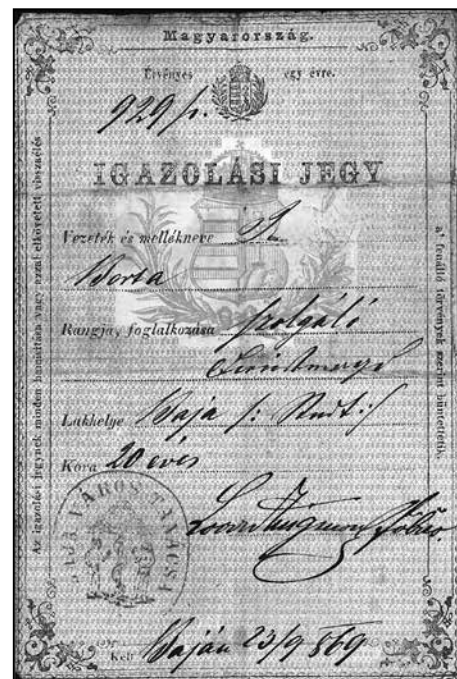 Magyarország.
Érvényes egy évre.
929/
IGAZOLÁSI JEGY
Vezeték és mellékneve
Borba
Rangja, foglalkozása szolgáló
Lakhelye Baja
Kora 20 éves
BAJA VÁROS TANÁCSA
Kelt Baján 23/9 869
Az igazolási jegynek minden hamisítása vagy azzal elkövetett visszaélés
a' fenálló törvények szerint büntettetik.